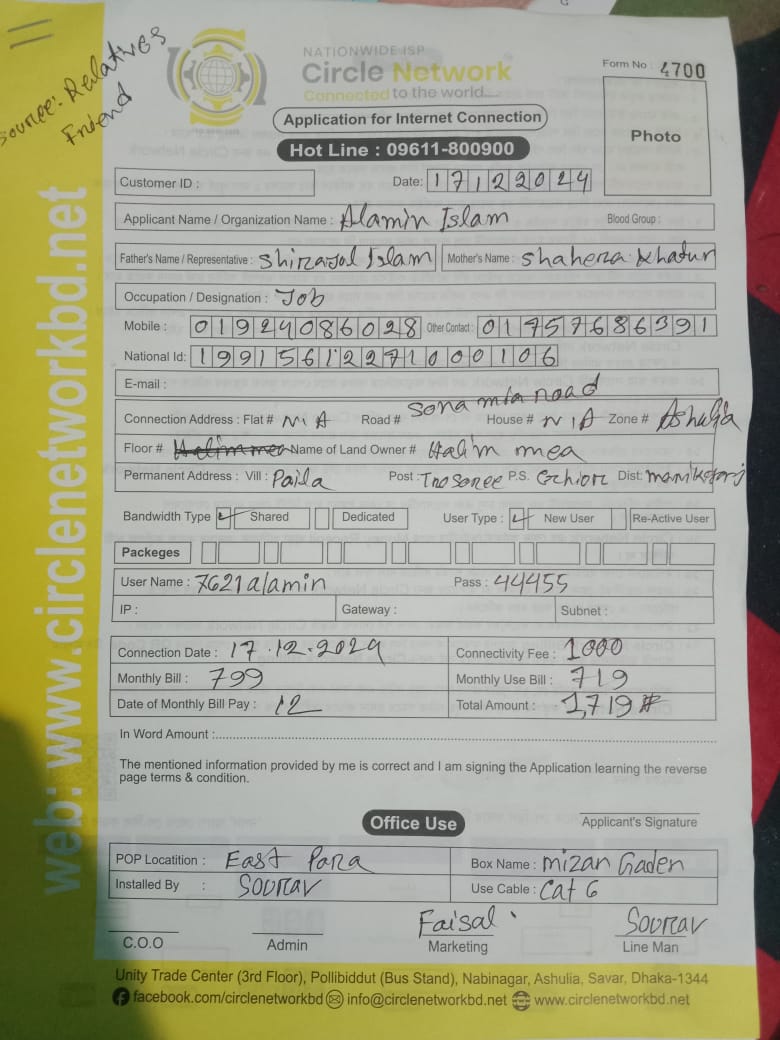 Source: Relatives
Friend
NATIONWIDE ISP
Circle Network
Connected to the world....
Form No : 4700
Application for Internet Connection
Hot Line : 09611-800900
Photo
Customer ID :
Date: 17122024
Applicant Name / Organization Name : Alamin Islam Blood Group :
Father's Name / Representative : Shirajul Islam Mother's Name : Shahera Khatun
Occupation / Designation : Job
Mobile : 01924086028 Other Contact : 01757686391
National Id: 19915612271000106
E-mail :
Connection Address : Flat # N A Road # Sona mia road House # N A Zone # Ashulia
Floor # Name of Land Owner # Halim mea
Permanent Address : Vill : Paila Post : P.S. Ghior Dist: manikgonj
Bandwidth Type Shared Dedicated User Type : New User Re-Active User
Packeges
User Name : 7621alamin Pass : 44455
IP : Gateway : Subnet :
Connection Date : 17.12.2024 Connectivity Fee : 1000
Monthly Bill : 799 Monthly Use Bill : 719
Date of Monthly Bill Pay : 12 Total Amount : 1,719#
In Word Amount :
The mentioned information provided by me is correct and I am signing the Application learning the reverse
page terms & condition.
Office Use
Applicant's Signature
POP Locatition : East Para Box Name : mizan Gaden
Installed By : Sourav Use Cable : Cat 6
Faisal Sourav
C.O.O Admin Marketing Line Man
Unity Trade Center (3rd Floor), Pollibiddut (Bus Stand), Nabinagar, Ashulia, Savar, Dhaka-1344
facebook.com/circlenetworkbd info@circlenetworkbd.net www.circlenetworkbd.net
web: www.circlenetworkbd.net